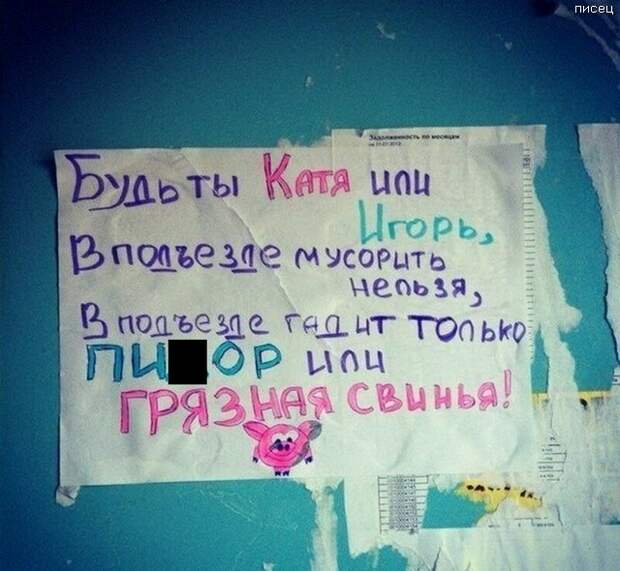 писец
Задолженность по месяцам
Будь ты Катя или
Игорь,
В подъезде мусорить
нельзя,
В подъезде гадит только
ПИ ОР или
ГРЯЗНАЯ свинья!